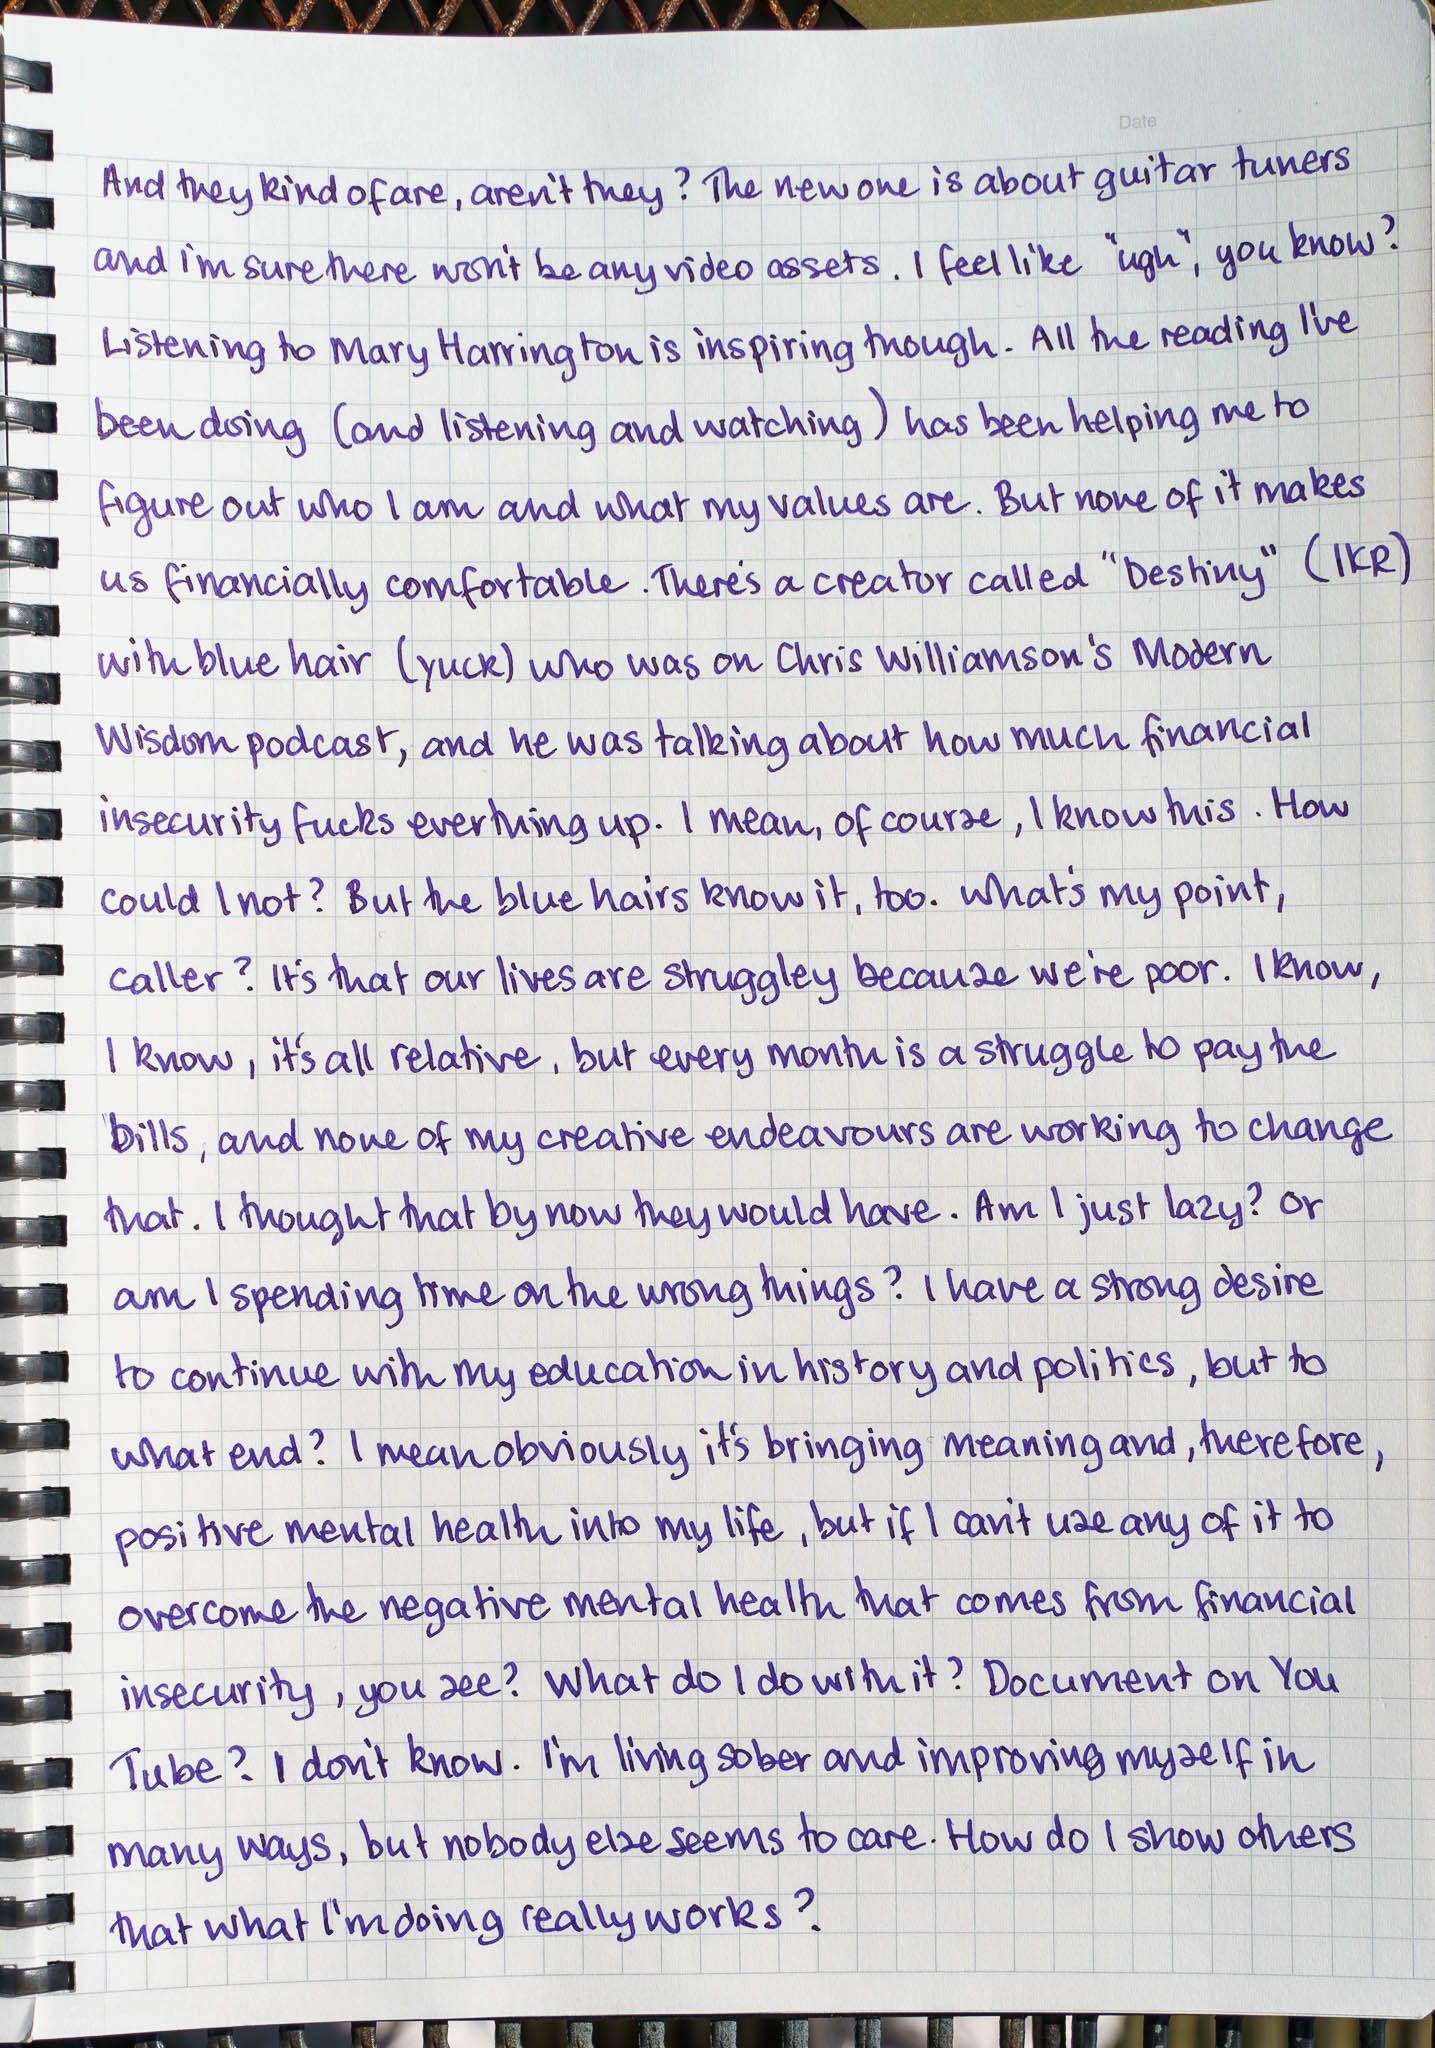 Date
And they kind of are, aren't they? The new one is about guitar tuners
and I'm sure there won't be any video assets. I feel like "ugh", you know?
Listening to Mary Harrington is inspiring though. All the reading I've
been doing (and listening and watching) has been helping me to
figure out who I am and what my values are. But none of it makes
us financially comfortable. There's a creator called "Destiny" (IKR)
with blue hair (yuck) who was on Chris Williamson's Modern
Wisdom podcast, and he was talking about how much financial
insecurity fucks everthing up. I mean, of course, I know this. How
could I not? But the blue hairs know it, too. What's my point,
caller? It's that our lives are struggley because we're poor. I know,
I know, it's all relative, but every month is a struggle to pay the
bills, and none of my creative endeavours are working to change
that. I thought that by now they would have. Am I just lazy? Or
am I spending time on the wrong things? I have a strong desire
to continue with my education in history and politics, but to
what end? I mean obviously it's bringing meaning and, therefore,
positive mental health into my life, but if I can't use any of it to
overcome the negative mental health that comes from financial
insecurity, you see? What do I do with it? Document on You
Tube? I don't know. I'm living sober and improving myself in
many ways, but nobody else seems to care. How do I show others
that what I'm doing really works?